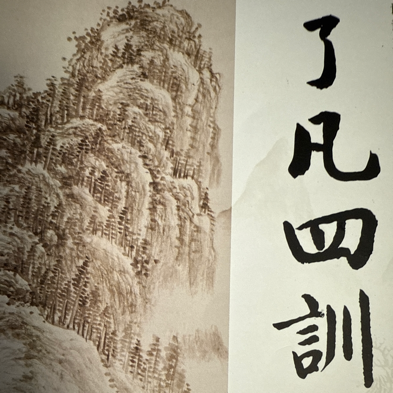 了凡四訓